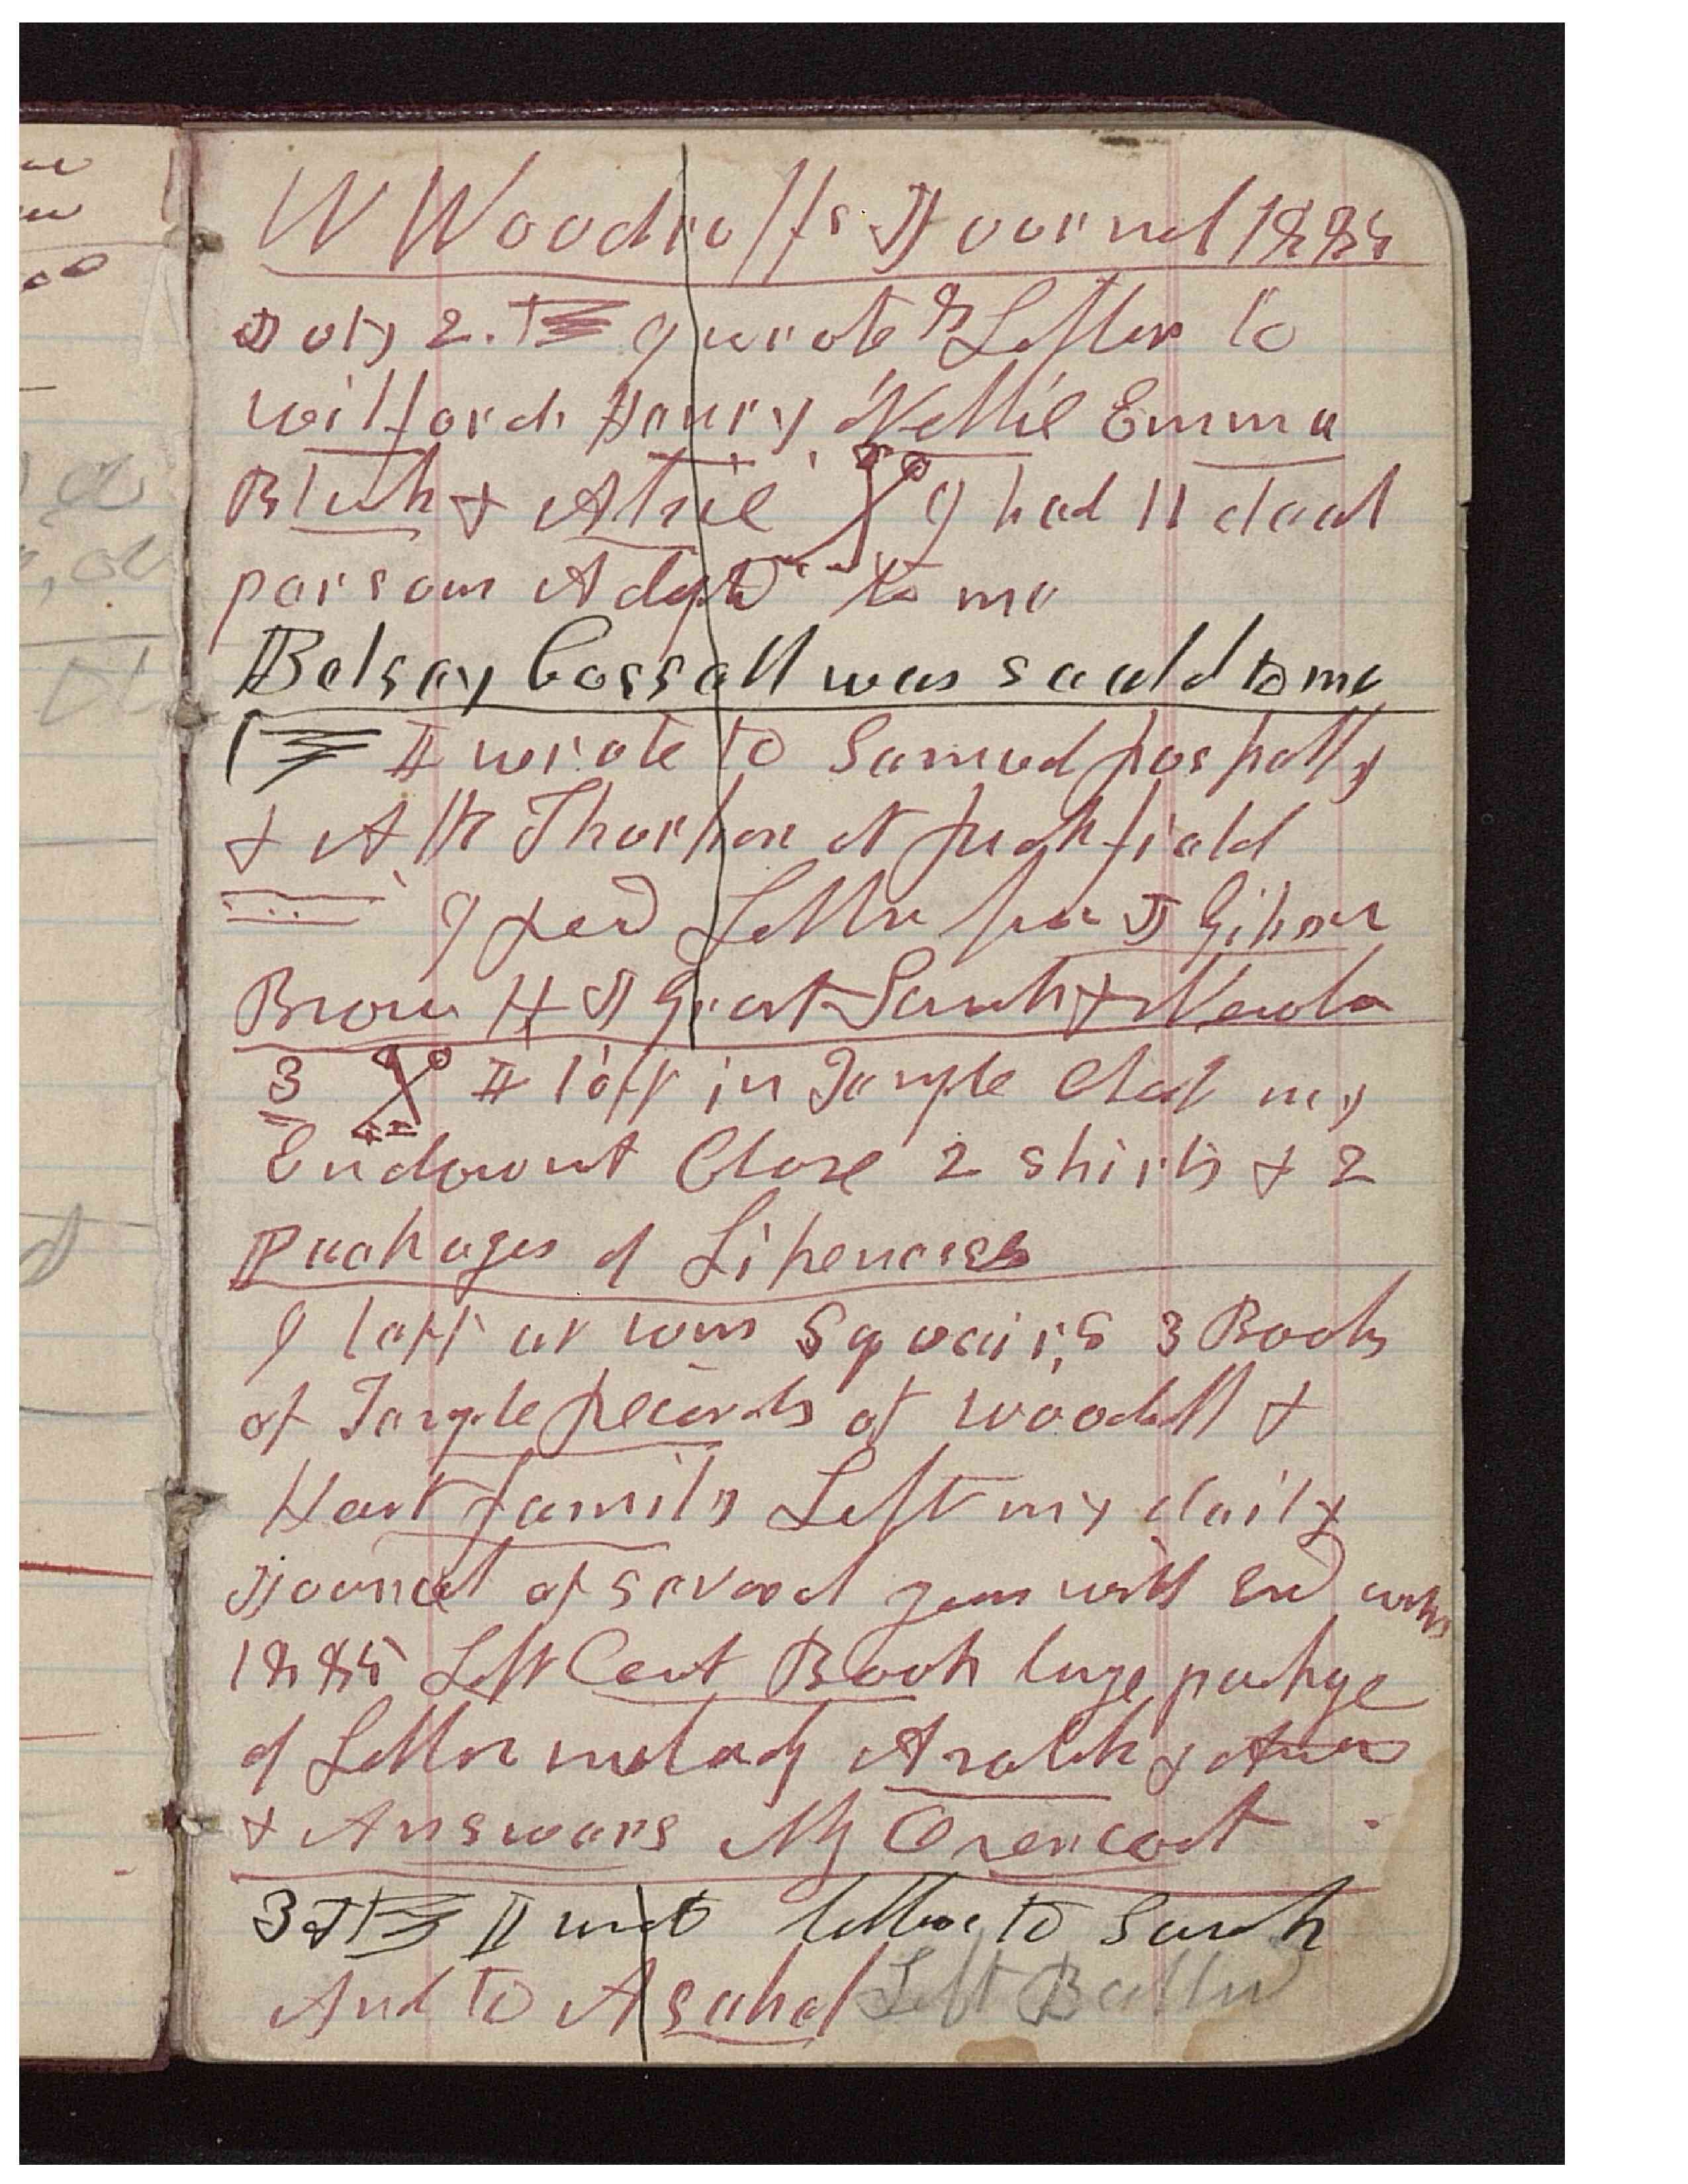 W Woodruffs Journal 1885
July 2. I wrote 8 Letters to
Wilford Henry Nellie Emma
Bluh & Asahel I had 11 dead
persons Adopted to me
Betsey Cossett was seald to me
I wrote to Samuel
& A R Thornton at Richfield
I recd Letters from J Gibson
Brown H J Grant Sarah & Newton
3 I left in Temple Chest my
Endowmt Close 2 shirts & 2
Packages of Likenesses
I left at Wm Squairs 3 Books
of Temple Records of Woodruff &
Hart family Left my daily
Journal of several years with
1885 Left Cent Book large package
of Letters
& Answers My Overcoat
3 I wrote letters to Sarah
And to Asahel Left